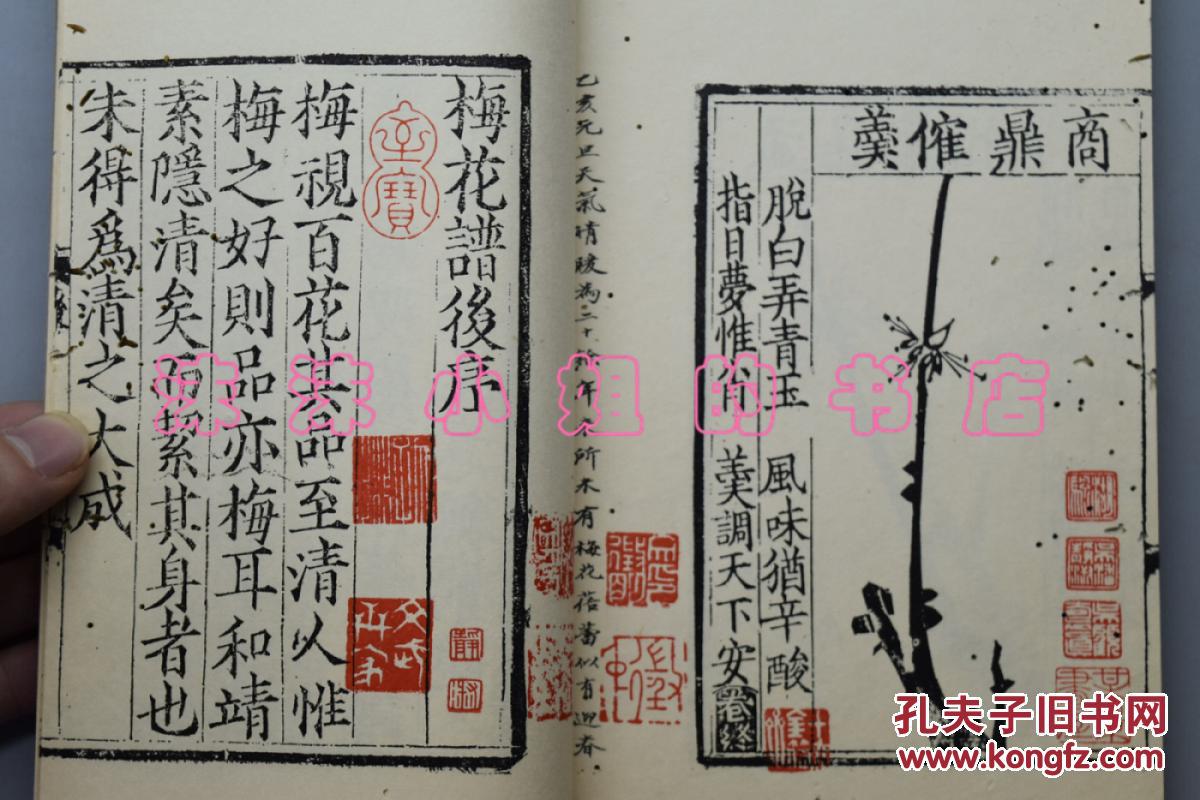 商鼎催羹
脫白弄青玉 風味猶辛酸
指日夢惟肖 羹調天下安 卷終
乙亥元旦天氣晴暖為二十餘年來所未有梅花蓓蕾似有迎春
梅花譜後序
至寶
梅視百花其品至清人惟
梅之好則品亦梅耳和靖
素隱清矣而累其身者也
未得爲清之大成
沫沫小姐的书店
孔夫子旧书网
www.kongfz.com